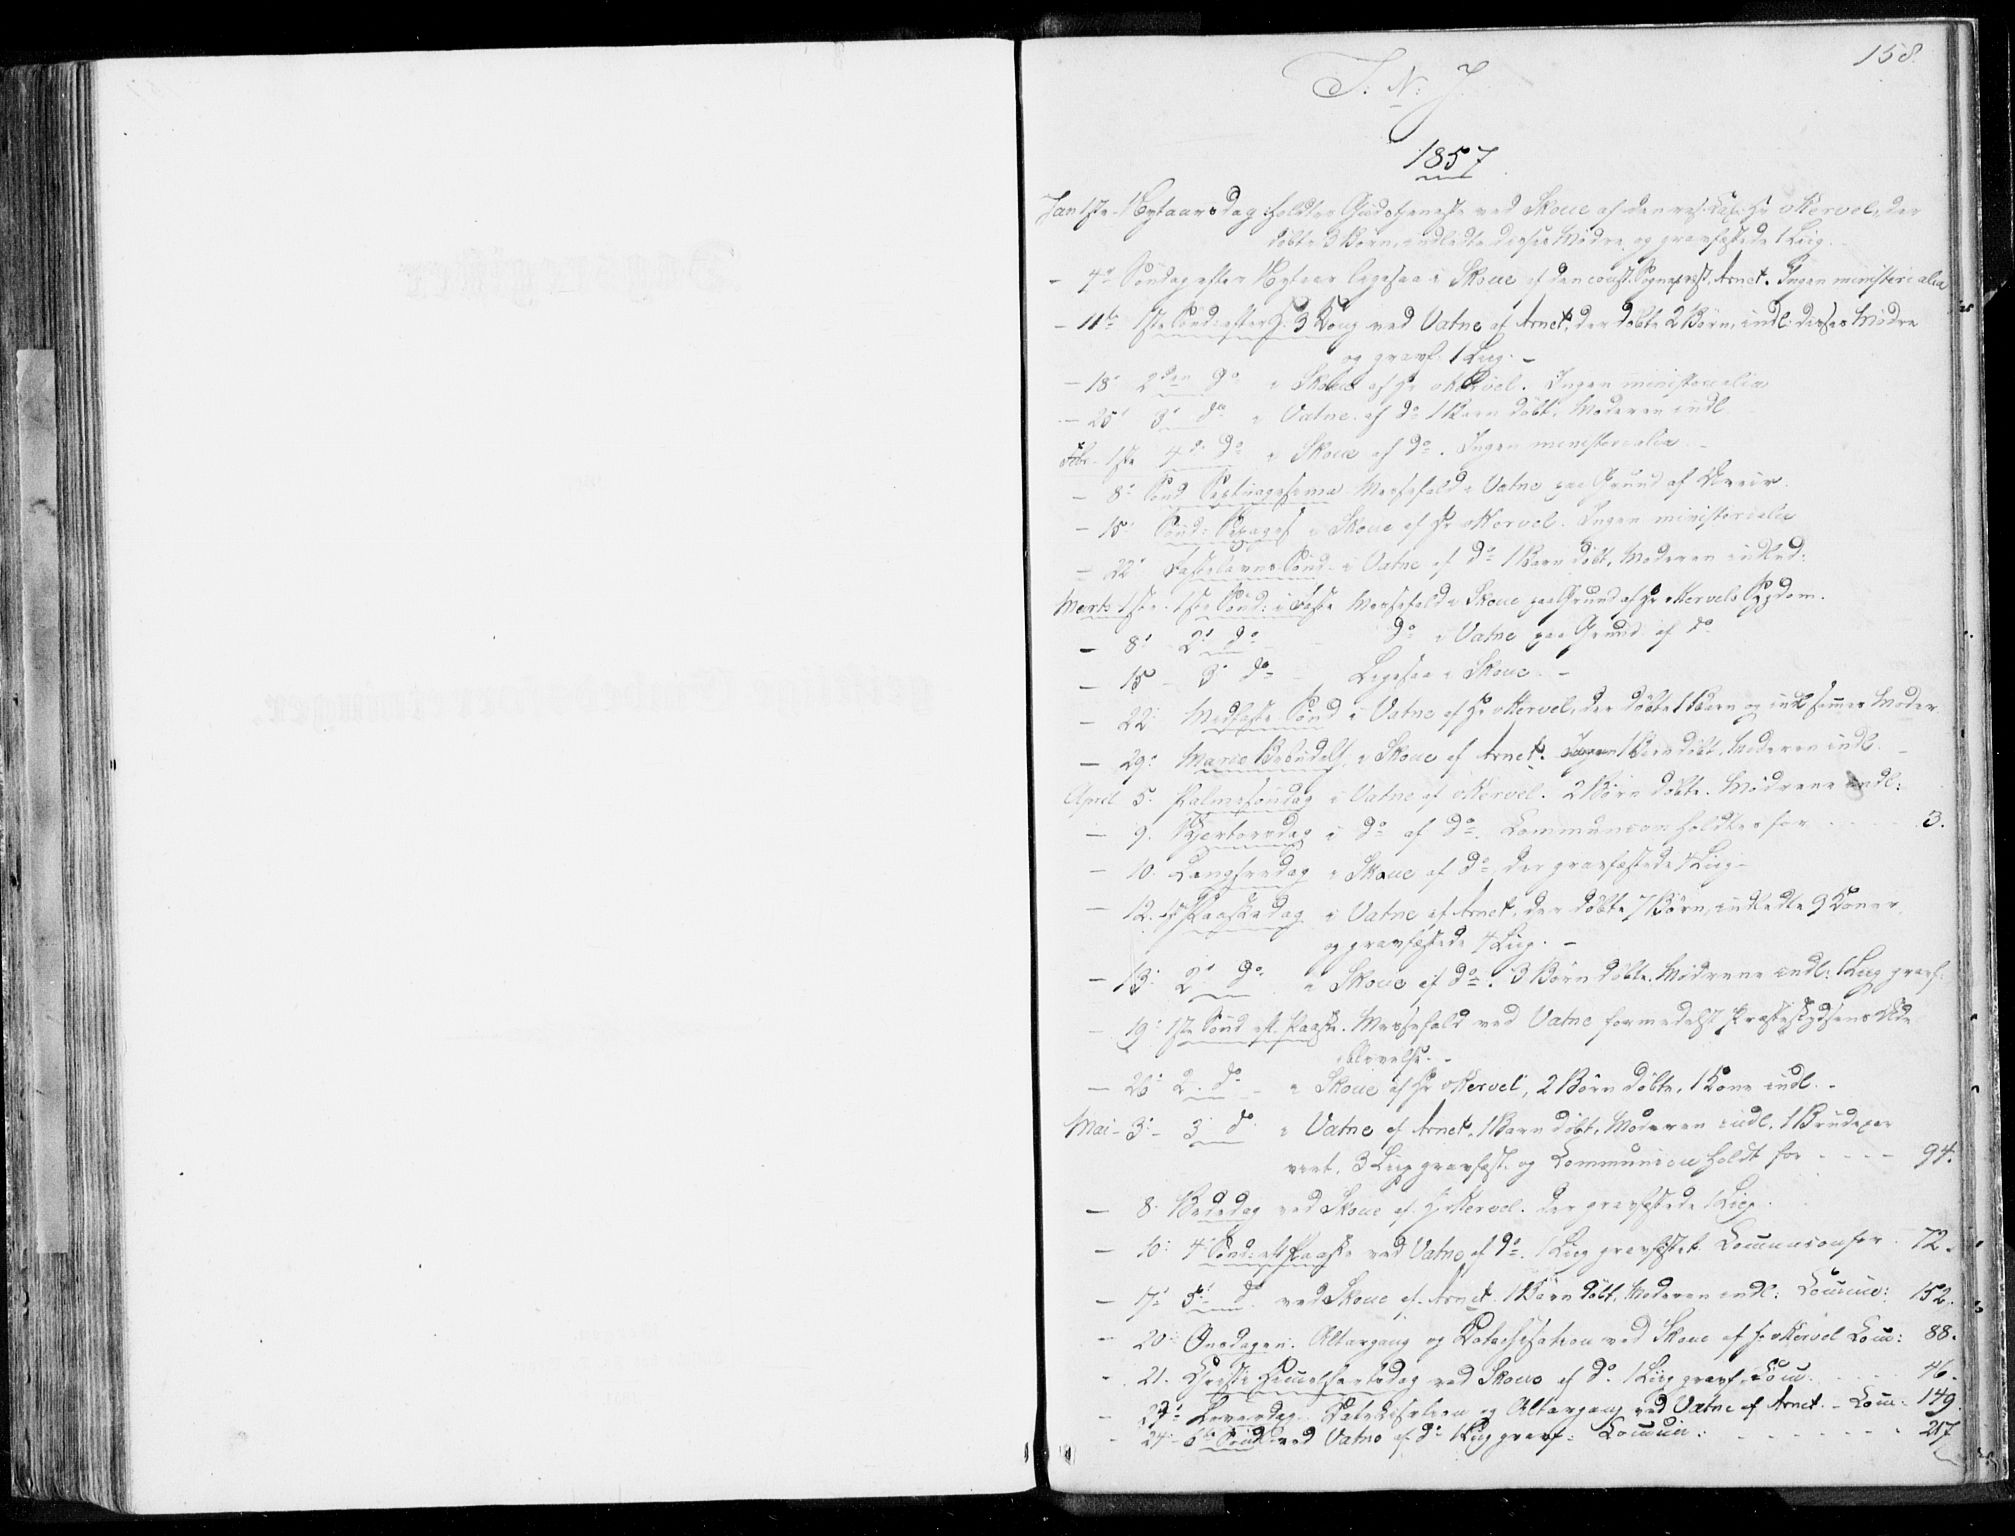 158.
I. N. J.
1857
Jan 1ste Nytaarsdag holdtes Gudstjeneste ved Skoue af den res. Cap. Hr Kervel, der
döbte 3 Börn, indledte disses Mödre og gravfæstede 1 Liig.
- 4de Söndag efter Nytaar ligesaa i Skoue af den const. Sognepræst Arnet. Ingen ministerialia
- 11te 1ste Sönd: efter H. 3 Kong. ved Vatne af Arnet, der döbte 2 Börn, indl. disses Mödre
og gravf. 1 Liig. -
- 18. 2den Do i Skoue af Hr Kervel. Ingen ministerialia
- 25. 3. Do i Vatne af Do 1 Barn döbt, Moderen indl.
Febr. 1ste 4de Do i Skoue af Do. Ingen ministerialia -
- 8. Sönd. Septuagesima Messefald i Vatne paa Grund af Uveir.
- 15. Sönd: Sexages i Skoue af Hr Kervel. Ingen ministerialia
- 22. Fastelavns Sönd. i Vatne af Do 1 Barn döbt, Moderen indled:
Marts 1ste 1ste Sönd: i Faste Messefald i Skoue paa Grund af Hr Kervels Sygdom.
- 8. 2. Do Do i Vatne paa Grund af Do
- 15 - 3. Do Ligesaa i Skoue. -
- 22. Midfaste Sönd i Vatne af Hr Kervel, der döbte 1 Barn og indl sammes Moder
- 29. Mariæ Bebudelse, i Skoue af Arnet. 1 Barn döbt, Moderen indl. -
April 5. Palmesöndag i Vatne af Kervel. 2 Börn döbte. Mödrene indl:
- 9. Skjertorsdag i Do af Do. Communion holdtes for - - - 3.
- 10. Langfredag i Skoue af Do, der gravfæstede 1 Liig -
- 12. 1ste Paaskedag i Vatne af Arnet, der döbte 7 Börn, indledte 9 Koner,
og gravfæstede 4 Liig. -
- 13. 2. Do i Skoue af Do. 3 Börn döbte. Mödrene indl: 1 Liig gravf:
- 19. 1ste Sönd eft. Paaske. Messefald ved Vatne formedelst Præsteskydsens Ude
blivelse. -
- 26. 2. Do - i Skoue af Hr Kervel, 2 Börn döbte, 1 Kone indl. -
Mai - 3. - 3 Do i Vatne af Arnet. 1 Barn döbt, Moderen indl. 1 Brudepar
viet, 3 Liig gravfæst. og Communion holdt for - - - - 94.
- 8. Bededag ved Skoue af Hr Kervel. der gravfæstede 1 Liig.
- 10. 4 Sönd: eft Paaske ved Vatne af Do. 1 Liig gravfæstet Communion for - 72.
- 17. 5te Do ved Skoue af Arnet. 1 Börn döbt, Moderen indl: Commun: 152.
- 20. Onsdagen: Altergang og Catechisation ved Skoue af Hr Kervel Com: 88.
- 21. Christi Himmelfartsdag ved Skoue af Do 1 Liig gravf. Com. - - - 46.
- 23. Löverdag. Catechisation og Altergang ved Vatne af Arnet. - Com - 149.
- 24. 6te Sönd ved Vatne af Do 1 Liig gravf: Commun: - - - - - 217